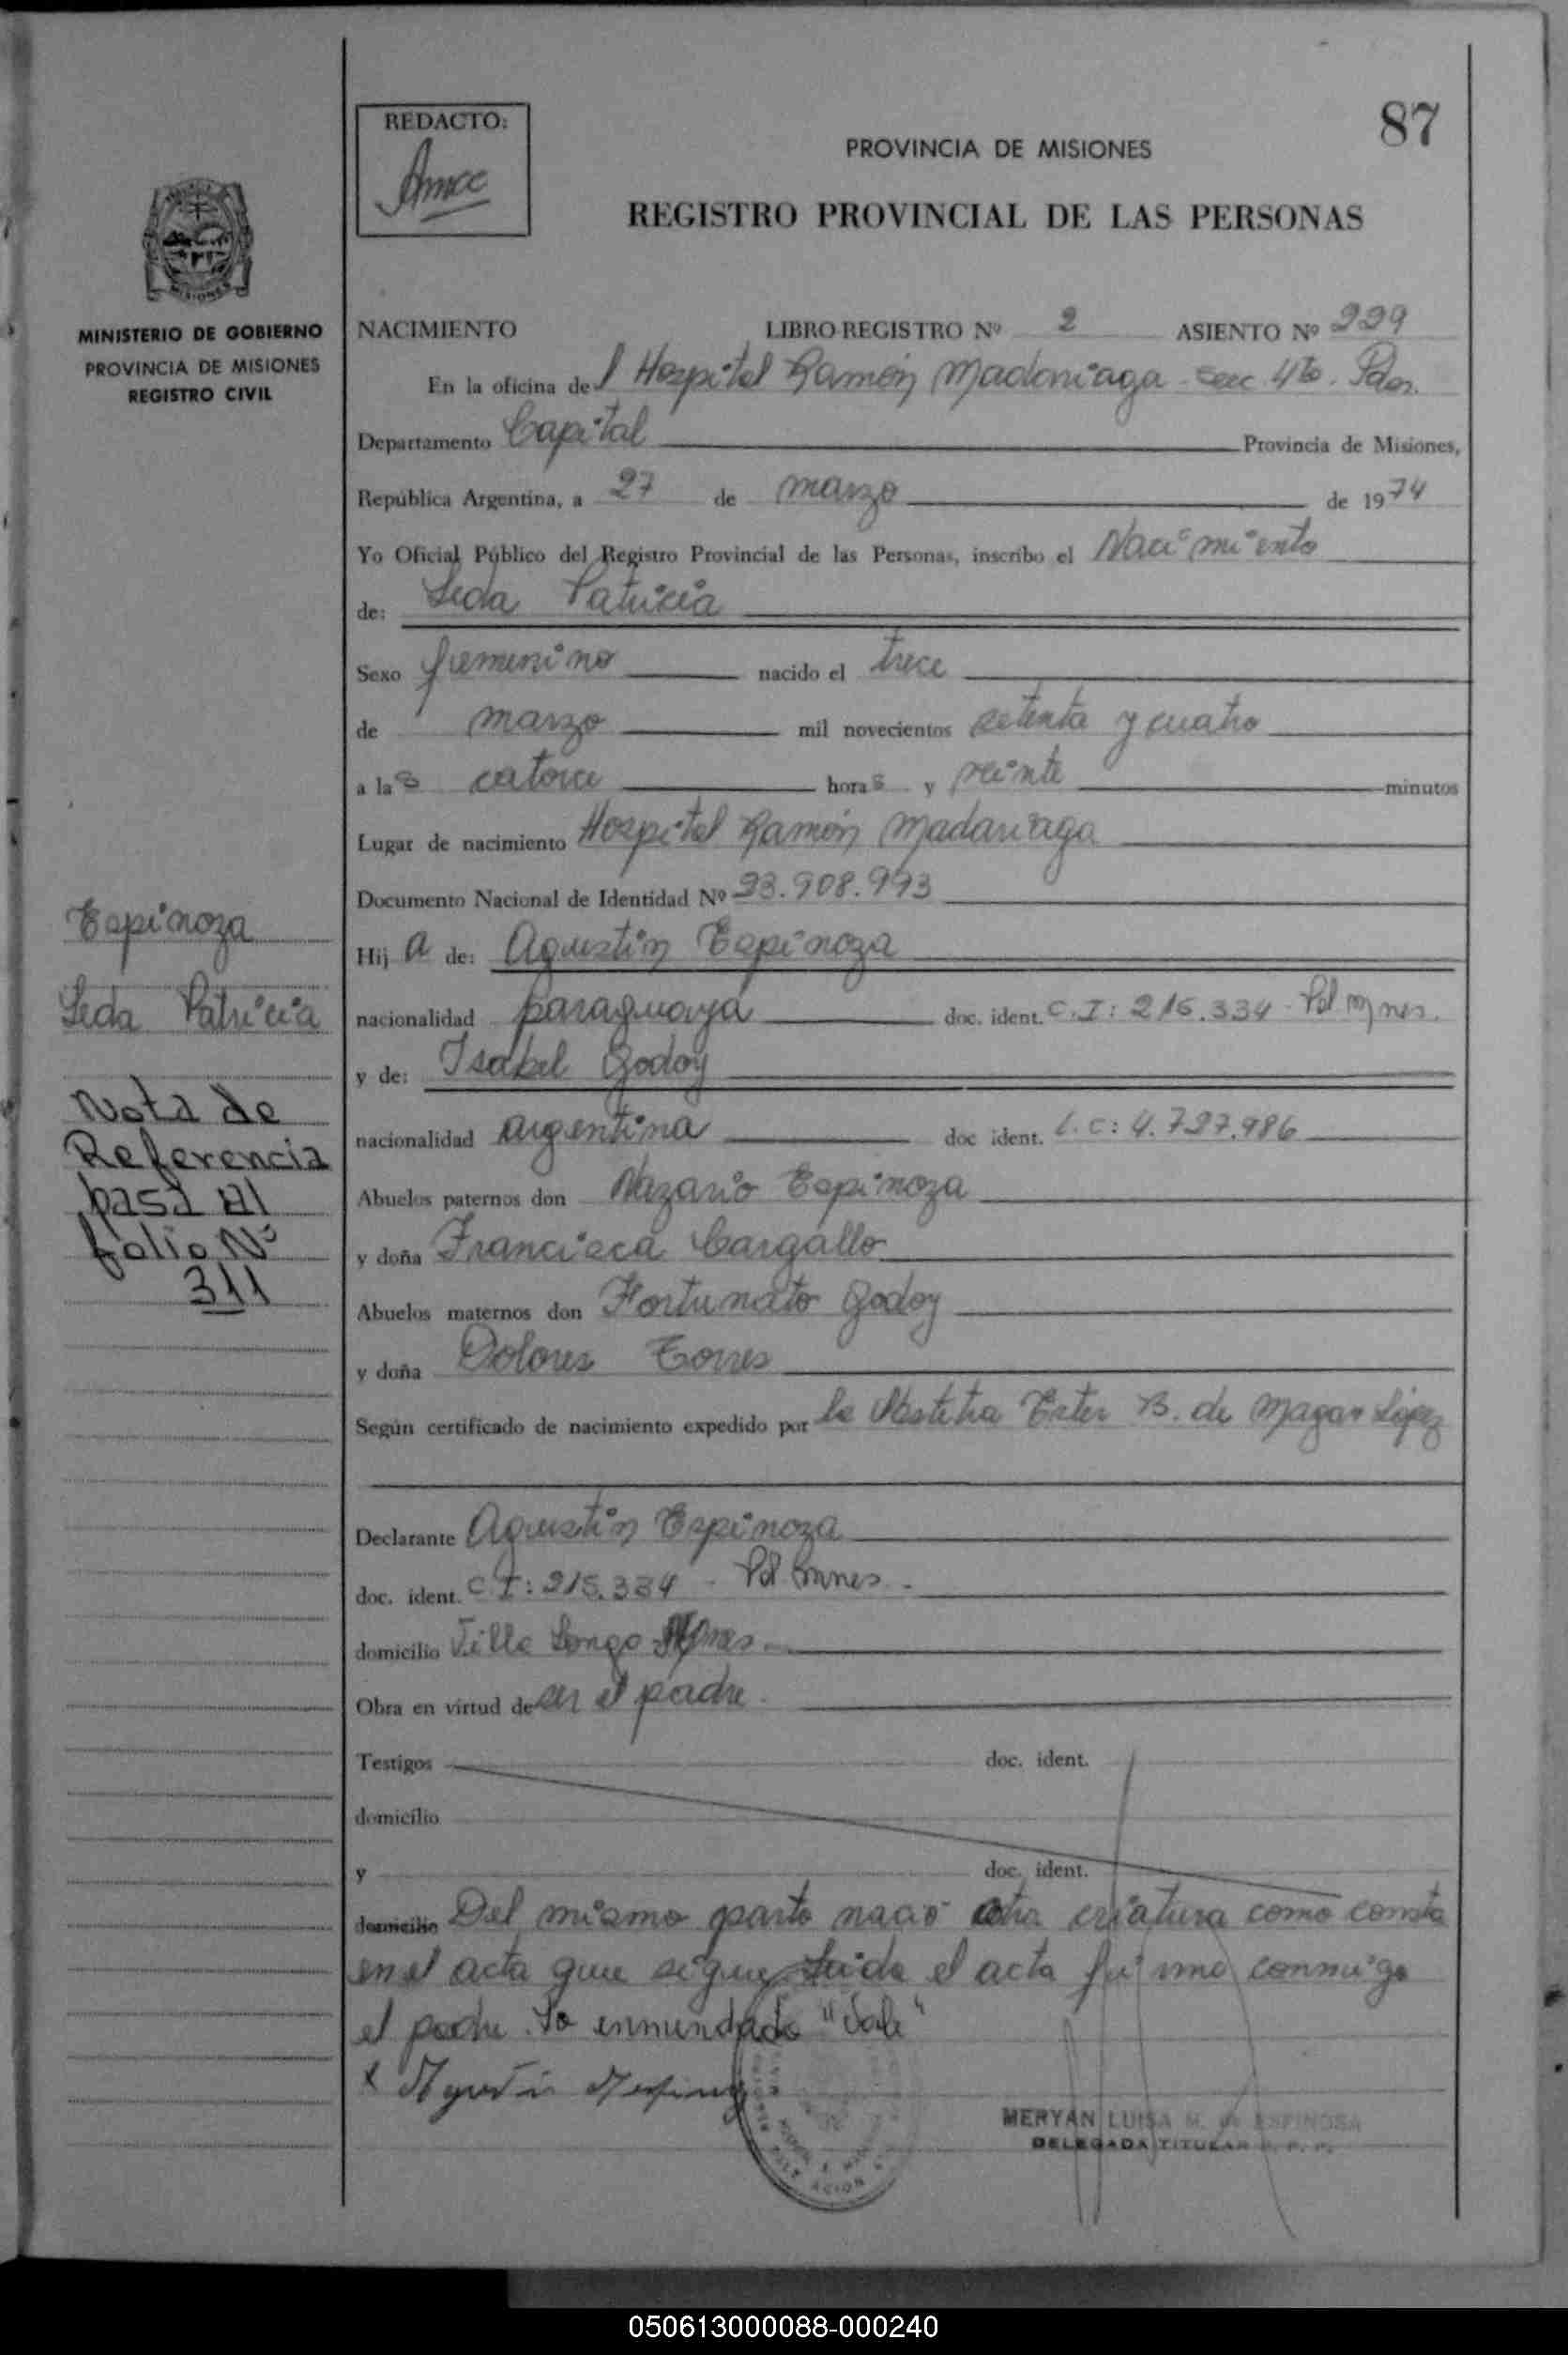 87
REDACTO:
PROVINCIA DE MISIONES
REGISTRO PROVINCIAL DE LAS PERSONAS
MISIONES
MINISTERIO DE GOBIERNO
PROVINCIA DE MISIONES
REGISTRO CIVIL
NACIMIENTO LIBRO REGISTRO Nº 2 ASIENTO Nº 229
En la oficina del Hospital Ramón Madariaga Sec 4to. Pdas.
Departamento Capital Provincia de Misiones,
República Argentina, a 27 de marzo de 1974
Yo Oficial Público del Registro Provincial de las Personas, inscribo el Nacimiento
de: Leda Patricia
Sexo femenino nacido el trece
de marzo mil novecientos setenta y cuatro
a las catorce horas y veinte minutos
Lugar de nacimiento Hospital Ramón Madariaga
Documento Nacional de Identidad Nº 23.908.993
Hija de: Agustín Espinoza
nacionalidad paraguaya doc. ident. C.I: 215.334 - Pol Mnes.
y de: Isabel Godoy
nacionalidad argentina doc ident. L.C: 4.727.986
Abuelos paternos don Nazario Espinoza
y doña Francisca Cargallo
Abuelos maternos don Fortunato Godoy
y doña Dolores Torres
Según certificado de nacimiento expedido por la Obstetra Ester B. de Magar López
Declarante Agustín Espinoza
doc. ident. C.I: 215.334 - Pol Mnes.
domicilio Villa Longo
Obra en virtud de ser el padre.
Testigos doc. ident.
domicilio
y doc. ident.
domicilio Del mismo parto nació otra criatura como consta
en el acta que sigue Leida el acta firma conmigo
el padre. Lo enmendado "Vale"
MERYAN LUISA M. de ESPINOSA
DELEGADA TITULAR R. P. P.
Espinoza
Leda Patricia
Nota de
Referencia
pasa al
folio Nº
311
050613000088-000240